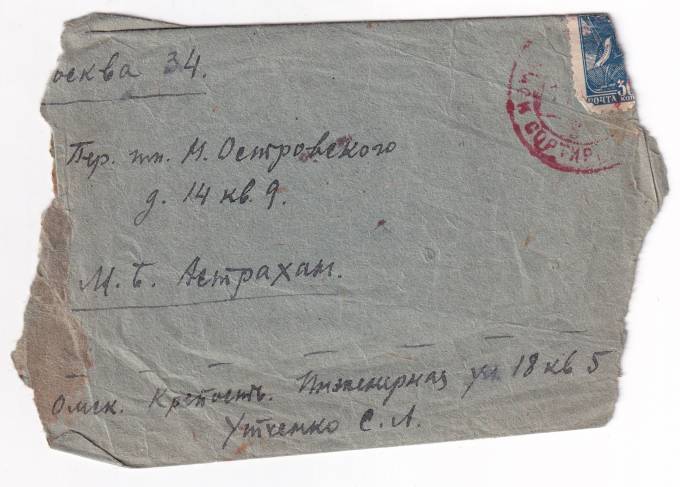 осква 34.
Пер. им. Н. Островского
д. 14 кв. 9.
М. Б. Астрахан.
Омск. Крепость. Инженерная ул. 18 кв 5
Утченко С. Л.
ПОЧТА КОП
СОРТИР